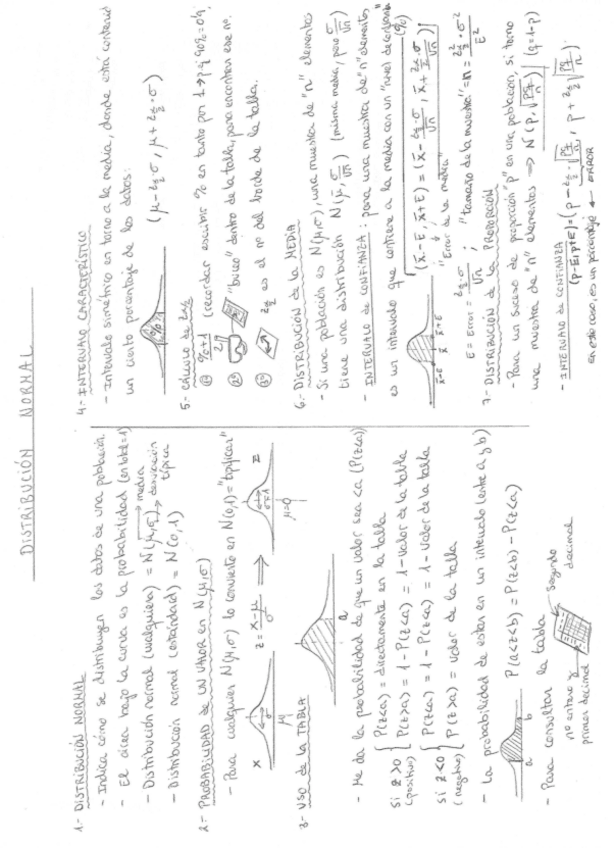 DISTRIBUCIÓN NORMAL
1.- DISTRIBUCIÓN NORMAL
- Indica cómo se distribuyen los datos de una población.
- El área bajo la curva es la probabilidad (en total=1)
- Distribución normal (cualquiera) = N(μ,σ) → media
→ desviación típica
- Distribución normal (estándar) = N(0,1)
2.- PROBABILIDAD DE UN VALOR en N(μ,σ)
- Para cualquier N(μ,σ) lo convierto en N(0,1) = "tipificar"
x
z = x-μ / σ
z
μ
μ=0
σ=1
3.- USO de la TABLA
a
- Me da la probabilidad de que un valor sea <a (P(z<a))
si z>0 (positivo) { P(z<a) = directamente en la tabla
P(z>a) = 1 - P(z<a) = 1 - valor de la tabla
si z<0 (negativo) { P(z<a) = 1 - P(z<a) = 1 - valor de la tabla
P(z>a) = valor de la tabla
- La probabilidad de estar en un intervalo (entre a y b)
a b
P(a<z<b) = P(z<b) - P(z<a)
- Para consultar la tabla
nº entero y primer decimal
segundo decimal
4.- INTERVALO CARACTERÍSTICO
- Intervalo simétrico en torno a la media, donde está contenido
un cierto porcentaje de los datos:
(μ - z α/2 · σ, μ + z α/2 · σ)
5.- CÁLCULO de z α/2
1º %+1 / 2 (recordar escribir % en tanto por 1
2º "busco" dentro de la tabla, para encontrar ese nº.
3º z α/2 es el nº del borde de la tabla.
6.- DISTRIBUCIÓN de la MEDIA
- Si una población es N(μ,σ), una muestra de "n" elementos
tiene una distribución N(μ, σ/√n) (misma media, pero σ/√n)
- INTERVALO de CONFIANZA: para una muestra de "n" elementos
es un intervalo que contiene a la media con un "nivel de confianza" (%)
x̄-E x̄ x̄+E
(x̄-E, x̄+E) = (x̄ - z α/2 · σ/√n, x̄ + z α/2 · σ/√n)
"Error de la media"
E = Error = z α/2 · σ / √n ; "tamaño de la muestra" = n = z² α/2 · σ² / E²
7.- DISTRIBUCIÓN de la PROPORCIÓN
- Para un suceso de proporción "p" en una población, si tomo
una muestra de "n" elementos ⇒ N(p, √(pq/n)) (q=1-p)
- INTERVALO de CONFIANZA
(p-E, p+E) = (p - z α/2 · √(pq/n), p + z α/2 √(pq/n))
en este caso, es un porcentaje ← ERROR